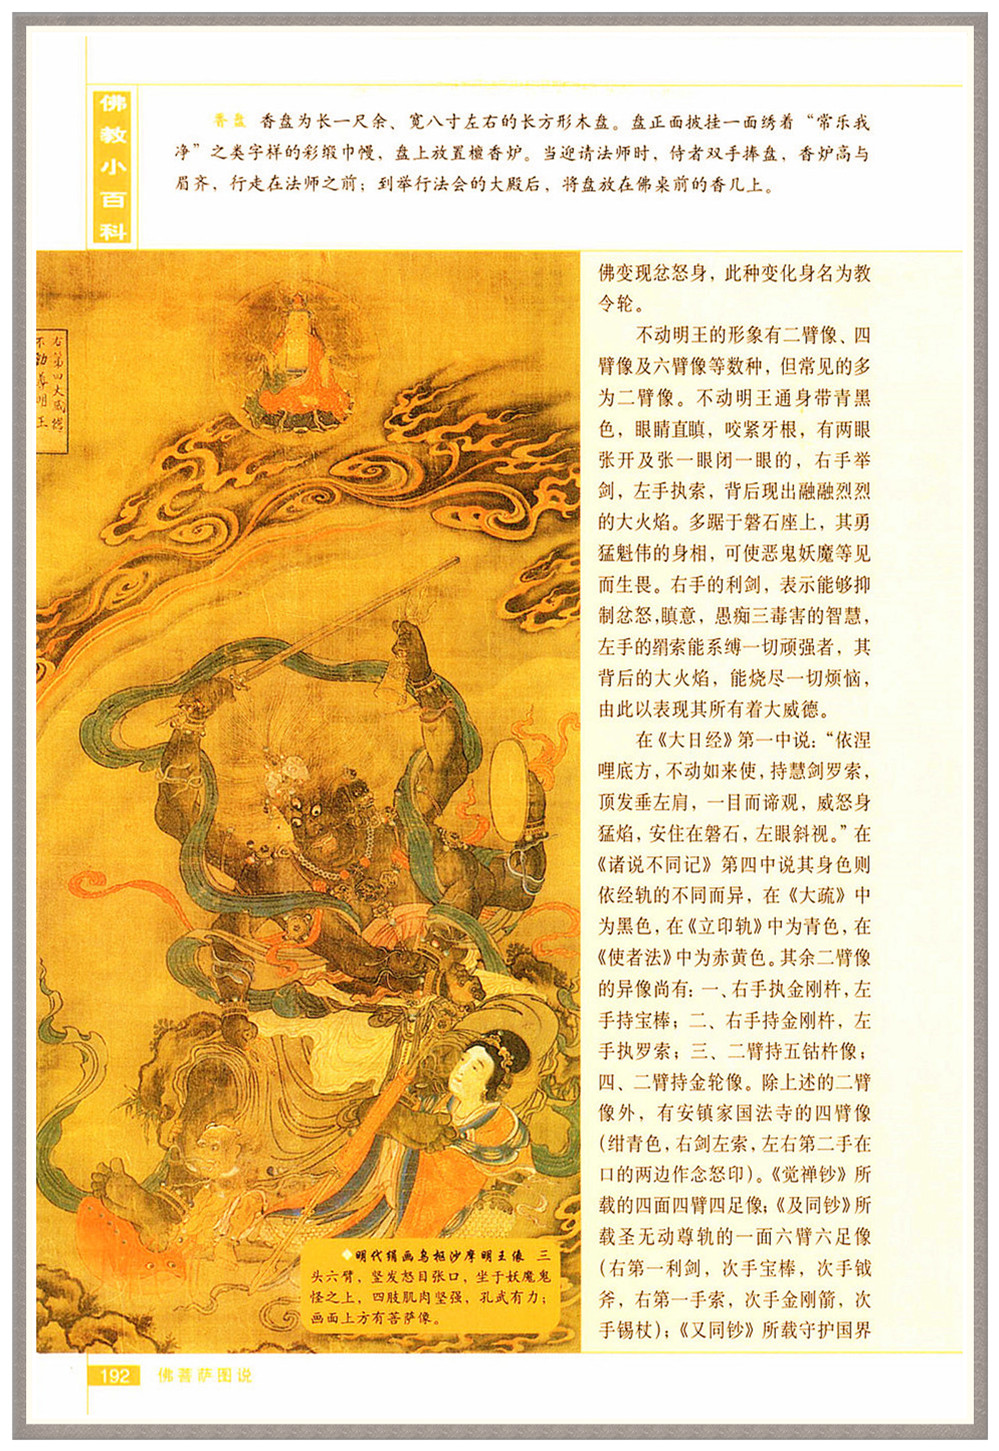 佛教小百科
香盘 香盘为长一尺余、宽八寸左右的长方形木盘。盘正面披挂一面绣着“常乐我
净”之类字样的彩缎巾幔，盘上放置檀香炉。当迎请法师时，侍者双手捧盘，香炉高与
眉齐，行走在法师之前；到举行法会的大殿后，将盘放在佛桌前的香几上。
右第四大威德
不动尊明王
◆明代绢画乌枢沙摩明王像 三
头六臂，竖发怒目张口，坐于妖魔鬼
怪之上，四肢肌肉坚强，孔武有力；
画面上方有菩萨像。
佛变现忿怒身，此种变化身名为教
令轮。
不动明王的形象有二臂像、四
臂像及六臂像等数种，但常见的多
为二臂像。不动明王通身带青黑
色，眼睛直瞋，咬紧牙根，有两眼
张开及张一眼闭一眼的，右手举
剑，左手执索，背后现出融融烈烈
的大火焰。多踞于磐石座上，其勇
猛魁伟的身相，可使恶鬼妖魔等见
而生畏。右手的利剑，表示能够抑
制忿怒,瞋意，愚痴三毒害的智慧，
左手的羂索能系缚一切顽强者，其
背后的大火焰，能烧尽一切烦恼，
由此以表现其所有着大威德。
在《大日经》第一中说：“依涅
哩底方，不动如来使，持慧剑罗索，
顶发垂左肩，一目而谛观，威怒身
猛焰，安住在磐石，左眼斜视。”在
《诸说不同记》第四中说其身色则
依经轨的不同而异，在《大疏》中
为黑色，在《立印轨》中为青色，在
《使者法》中为赤黄色。其余二臂像
的异像尚有：一、右手执金刚杵，左
手持宝棒；二、右手持金刚杵，左
手执罗索；三、二臂持五钴杵像；
四、二臂持金轮像。除上述的二臂
像外，有安镇家国法寺的四臂像
（绀青色，右剑左索，左右第二手在
口的两边作念怒印）。《觉禅钞》所
载的四面四臂四足像；《及同钞》所
载圣无动尊轨的一面六臂六足像
（右第一利剑，次手宝棒，次手钺
斧，右第一手索，次手金刚箭，次
手锡杖）；《又同钞》所载守护国界
192 佛菩萨图说